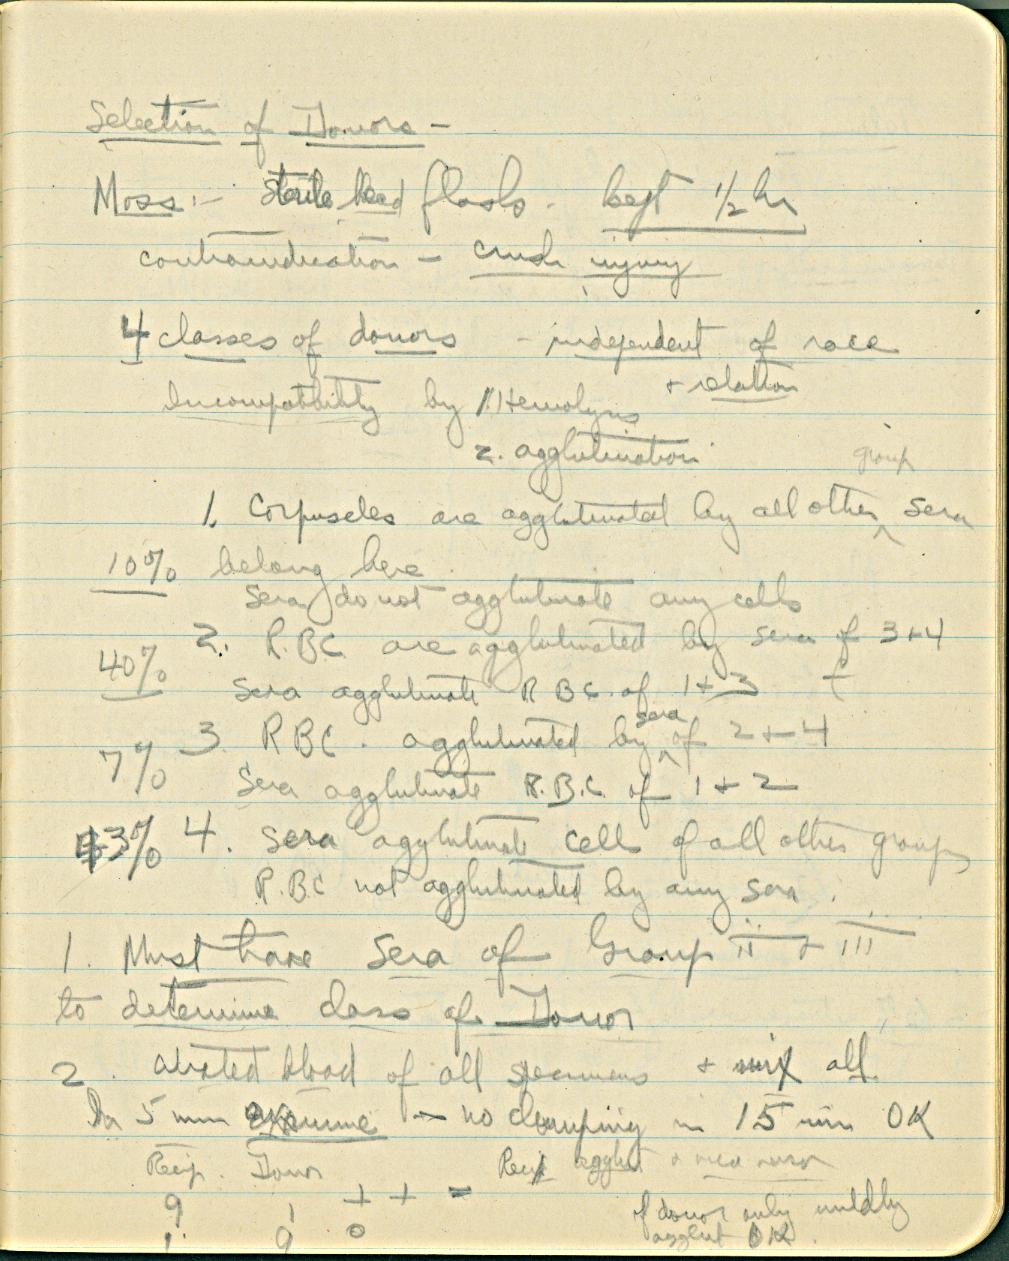 Selection of Donors -
Moss:- Sterile flasks - kept 1/2 hr
contraindication - crush injury
4 classes of donors - independent of race
+ relation
Incompatibility by 1. Hemolysis
2. agglutination
group
1. Corpuscles are agglutinated by all other ^ sera
10% belong here
Sera do not agglutinate any cells
2. R.BC are agglutinated by sera of 3+4
40%
Sera agglutinate R BC. of 1+3
sera
3. RBC. agglutinated by ^ of 2+4
7%
Sera agglutinate R.B.C. of 1+2
43% 4. Sera agglutinate cells of all other groups
R.BC not agglutinated by any sera.
1. Must have Sera of Group II + III
to determine class of Donor
2. citrated blood of all specimens + mix all.
In 5 min examine - no clumping in 15 min OK
Recip. Donor Recip agglut +
9 1 + + =
1. 9 0
if donor only mildly
agglut OK.